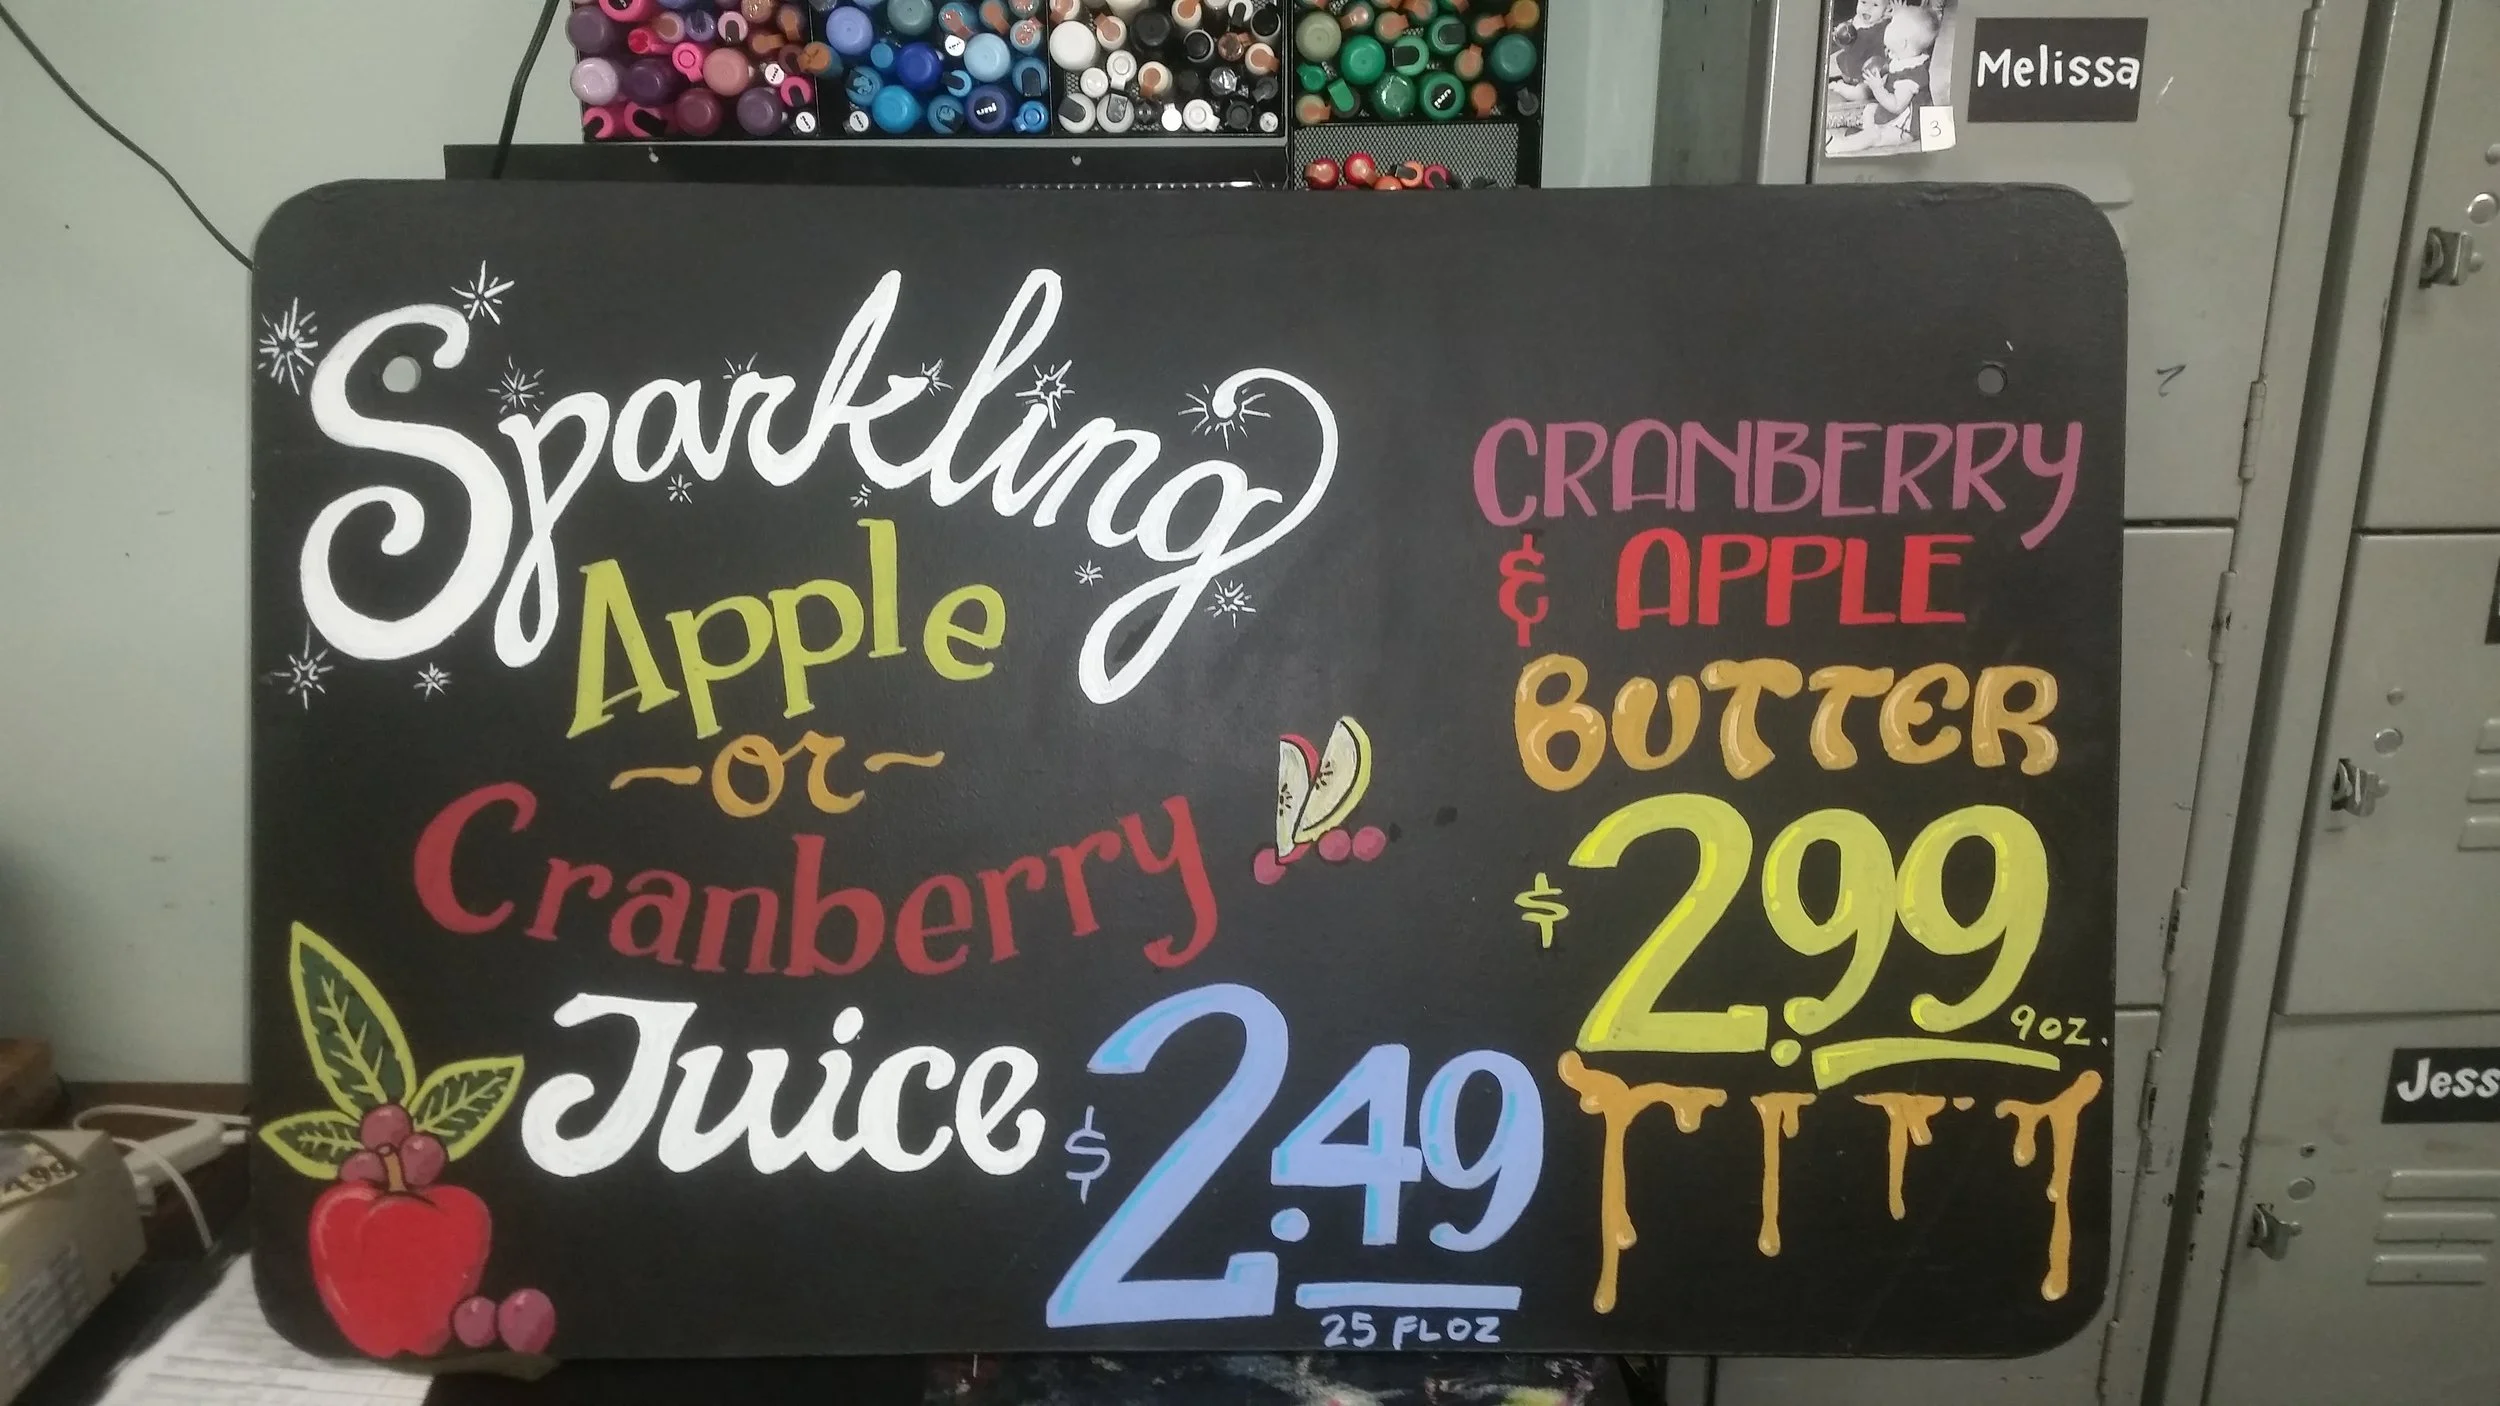 Melissa
3
Sparkling
Apple
~or~
Cranberry
Juice
$2.49
25 FL OZ
CRANBERRY
& APPLE
BUTTER
$2.99
9 OZ.
Jess